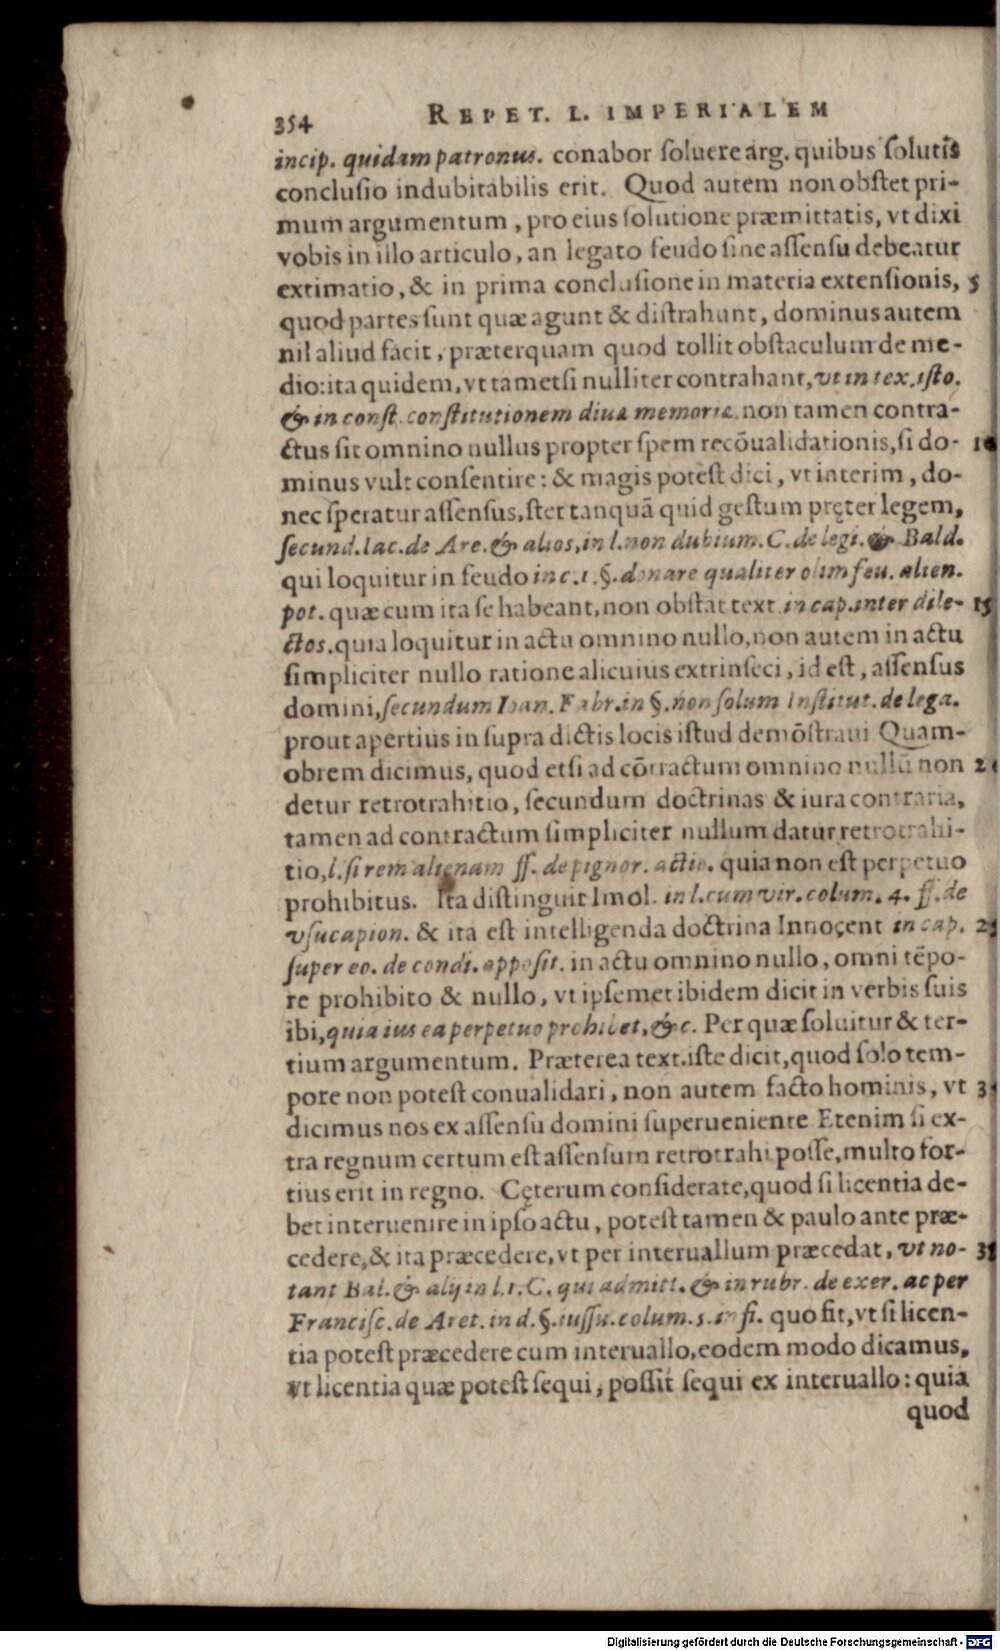 354 REPET. L. IMPERIALEM
incip. quidam patronus. conabor soluere arg. quibus solutis
conclusio indubitabilis erit. Quod autem non obstet pri-
mum argumentum, pro eius solutione præmittatis, vt dixi
vobis in illo articulo, an legato feudo sine assensu debeatur
extimatio, & in prima conclusione in materia extensionis, 5
quod partes sunt quæ agunt & distrahunt, dominus autem
nil aliud facit, præterquam quod tollit obstaculum de me-
dio: ita quidem, vt tametsi nulliter contrahant, vt in tex. isto.
& in const. constitutionem diuæ memoriæ. non tamen contra-
ctus sit omnino nullus propter spem recōualidationis, si do- 10
minus vult consentire: & magis potest dici, vt interim, do-
nec speratur assensus, stet tanquā quid gestum pręter legem,
secund. Iac. de Are. & alios, in l. non dubium. C. de legi. & Bald.
qui loquitur in feudo in c. 1. §. donare qualiter olim feu. alien.
pot. quæ cum ita se habeant, non obstat text. in cap. inter dile- 15
ctos. quia loquitur in actu omnino nullo, non autem in actu
simpliciter nullo ratione alicuius extrinseci, id est, assensus
domini, secundum Ioan. Fabr. in §. non solum Institut. de lega.
prout apertius in supra dictis locis istud demōstraui Quam-
obrem dicimus, quod etsi ad cōtractum omnino nullū non 20
detur retrotrahitio, secundum doctrinas & iura contraria,
tamen ad contractum simpliciter nullum datur retrotrahi-
tio, l. si rem alienam ff. de pignor. actio. quia non est perpetuo
prohibitus. Ita distinguit Imol. in l. cum vir. colum. 4. ff. de
vsucapion. & ita est intelligenda doctrina Innoçent in cap. 25
super eo. de condi. apposit. in actu omnino nullo, omni tēpo-
re prohibito & nullo, vt ipsemet ibidem dicit in verbis suis
ibi, quia ius ea perpetuo prohibet, &c. Per quæ soluitur & ter-
tium argumentum. Præterea text. iste dicit, quod solo tem-
pore non potest conualidari, non autem facto hominis, vt 3
dicimus nos ex assensu domini superueniente Etenim si ex-
tra regnum certum est assensum retrotrahi posse, multo for-
tius erit in regno. Cęterum considerate, quod si licentia de-
bet interuenire in ipso actu, potest tamen & paulo ante præ-
cedere, & ita præcedere, vt per interuallum præcedat, vt no- 35
tant Bal. & alij in l. 1. C. qui admitt. & in rubr. de exer. ac per
Francisc. de Aret. in d. §. iussu. colum. 5. in fi. quo fit, vt si licen-
tia potest præcedere cum interuallo, eodem modo dicamus,
vt licentia quæ potest sequi, possit sequi ex interuallo: quia
quod
Digitalisierung gefördert durch die Deutsche Forschungsgemeinschaft - DFG